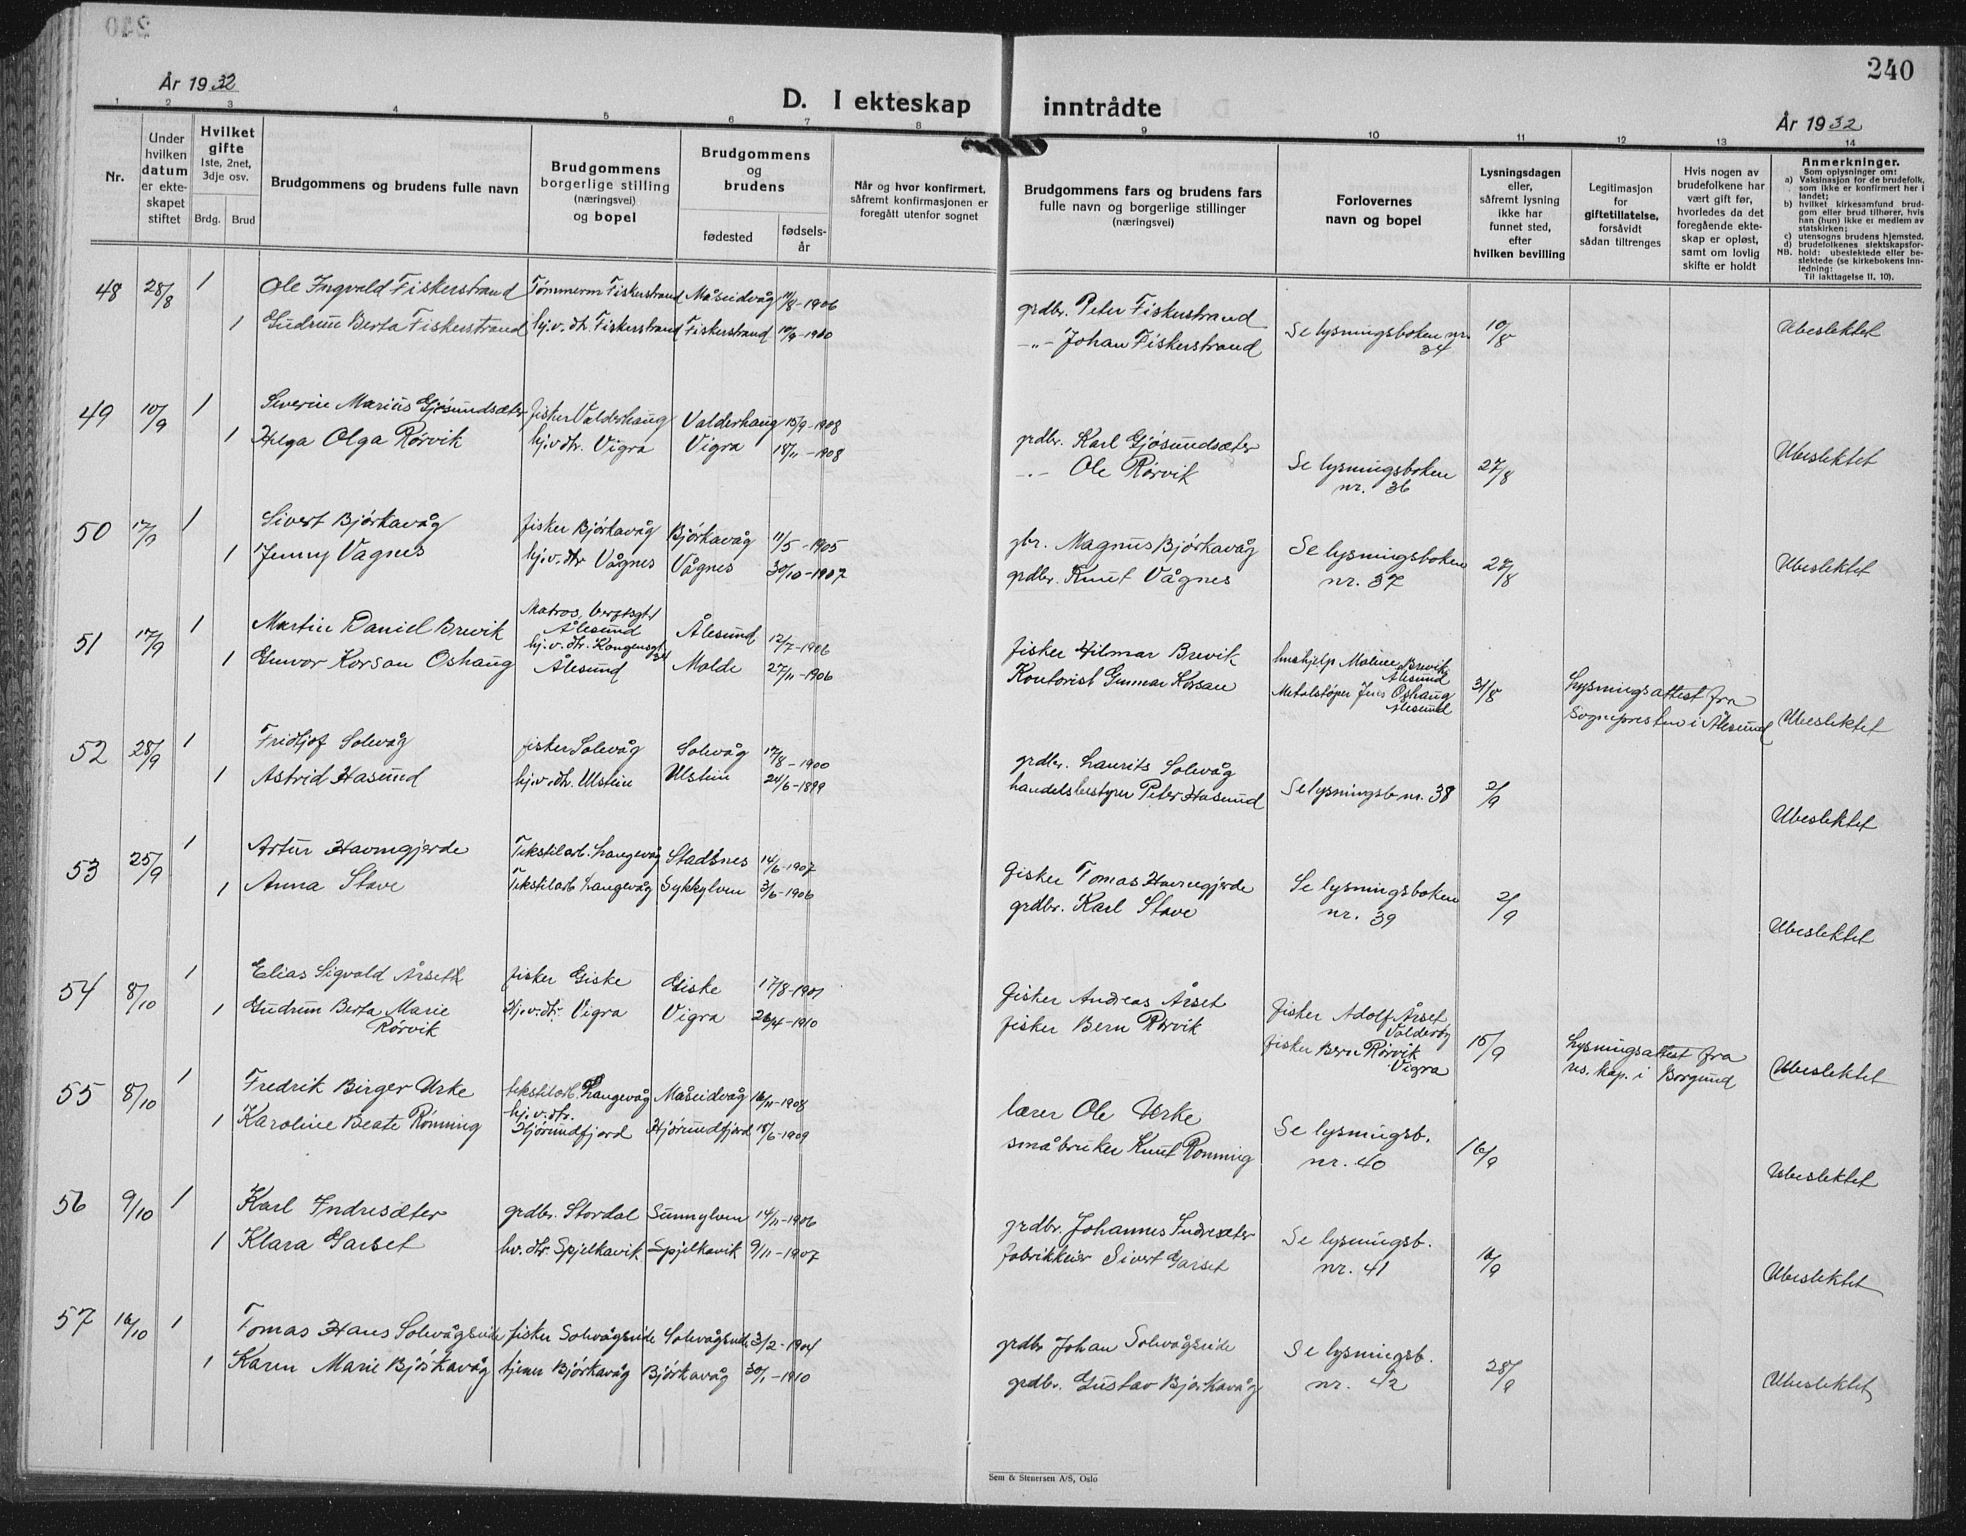 240
År 1932
D. I ekteskap inntrådte
År 1932
1 2 3 4 5 6 7 8 9 10 11 12 13 14
Nr.
Under hvilken datum er ekteskapet stiftet
Hvilket gifte
1ste, 2net, 3dje osv.
Brdg. Brud
Brudgommens og brudens fulle navn
Brudgommens borgerlige stilling (næringsvei) og bopel
Brudgommens og brudens
fødested
fødselsår
Når og hvor konfirmert, såfremt konfirmasjonen er foregått utenfor sognet
Brudgommens fars og brudens fars fulle navn og borgerlige stillinger (næringsvei)
Forlovernes navn og bopel
Lysningsdagen eller, såfremt lysning ikke har funnet sted, efter hvilken bevilling
Legitimasjon for giftetillatelse, forsåvidt sådan tiltrenges
Hvis nogen av brudefolkene har vært gift før, hvorledes da det foregående ekteskap er opløst, samt om lovlig skifte er holdt
Anmerkninger.
Som oplysninger om:
a) Vaksinasjon for de brudefolk, som ikke er konfirmert her i landet;
b) hvilket kirkesamfund brudgom eller brud tilhører, hvis han (hun) ikke er medlem av statskirken;
c) utensogns brudens hjemsted.
d) brudefolkenes slektskapsforhold: ubeslektede eller beslektede (se kirkebokens innledning:
NB. Til iakttagelse 11, 10).
48 28/8 1 Ole Ingvald Fiskerstrand Tømmerm Fiskerstrand Måseidvåg 11/8-1906 grdbr. Peter Fiskerstrand
1 Gudrun Berta Fiskerstrand hj.v. dtr. Fiskerstrand Fiskerstrand -1910 -"- Johan Fiskerstrand Se lysningsboken nr. 34 10/8 Ubeslektet
49 10/9 1 Severin Marius Gjøsundsæter fisker Valderhaug Valderhaug 15/9-1908 grdbr. Karl Gjøsundsæter
1 Helga Olga Rørvik hj.v.dtr. Vigra Vigra 18/11-1908 -"- Ole Rørvik Se lysningsboken nr. 36 27/8 Ubeslektet
50 17/9 1 Sivert Bjørkavåg fisker Bjørkavåg Bjørkavåg 11/5-1905 gbr. Magnus Bjørkavåg
1 Jenny Vagnes hj.v. dtr Vågnes Vågnes 30/10-1907 grdbr. Knut Vågnes Se lysningsboken nr. 37 27/8 Ubeslektet
51 17/9 1 Martin Daniel Brevik Matros Ålesund Ålesund 12/7-1906 fisker Hilmar Brevik Brevik Ålesund
1 Gunvor Korsan Oshaug hj.v. dtr. Kongensgt Ålesund Molde 27/11-1906 Kontorist Gunnar Korsan Metalstøper Jens Oshaug Ålesund 31/8 Lysningsattest fra Sognepresten i Ålesund Ubeslektet
52 28/9 1 Fridtjof Solevåg fisker Solevåg Solevåg 17/8-1900 grdbr. Laurits Solevåg
1 Astrid Hasund hj.v.dtr. Ulstein Ulstein 24/6-1899 handelsbestyrer Peter Hasund Se lysningsb. nr. 38 2/9 Ubeslektet
53 25/9 1 Artur Havnegjerde Tekstilarb. Langevåg Stadsnes 14/6-1907 fisker Tomas Havnegjerde
1 Anna Stave Tekstilarb Langevåg Sykkylven 3/6-1906 grdbr. Karl Stave Se lysningsboken nr. 39 2/9 Ubeslektet
54 8/10 1 Elias Sigvald Årseth fisker Giske Giske 17/8-1901 fisker Andreas Årset fisker Adolf Årset Valderøy
1 Gudrun Berta Marie Rørvik Hj.v.dtr. Vigra Vigra 26/4-1910 fisker Bern Rørvik fisker Bern Rørvik Vigra 15/9 Lysningsattest fra res. kap. i Borgund Ubeslektet
55 8/10 1 Fredrik Birger Urke tekstilarb. Langevåg Måseidvåg 16/11-1908 lærer Ole Urke
1 Karoline Beate Rønning hj.v.dtr. Hjørundfjord Hjørundfjord 18/6-1909 småbruker Knut Rønning Se lysningsb. nr. 40 16/9 Ubeslektet
56 9/10 1 Karl Indresæter grdbr. Stordal Sunnylven 14/11-1906 grdbr. Johannes Indresæter
1 Klara Garset hv. dtr. Spjelkavik Spjelkavik 9/11-1907 fabrikkeier Sivert Garset Se lysningsb. nr. 41 16/9 Ubeslektet
57 16/10 1 Tomas Hans Solevågseide fisker Solevågseide Solevågseide 3/2-1904 grdbr Johan Solevågseide
1 Karen Marie Bjørkavåg tjener Bjørkavåg Bjørkavåg 30/1-1910 grdbr. Gustav Bjørkavåg Se lysningsb. nr. 42 28/9 Ubeslektet
Sem & Stenersen A/S, Oslo